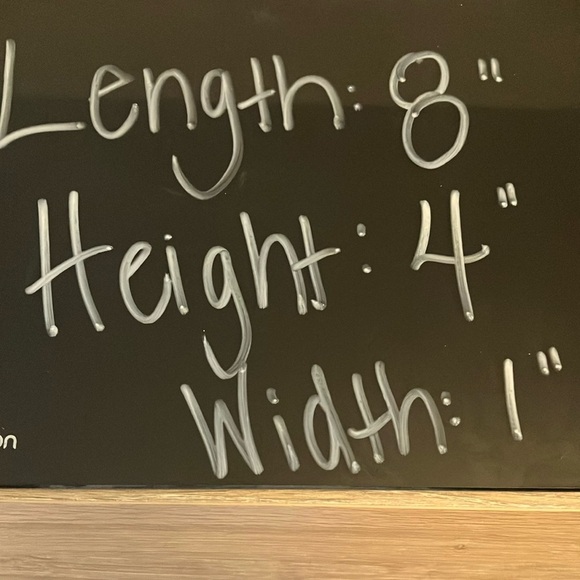 Length: 8"
Height: 4"
Width: 1"